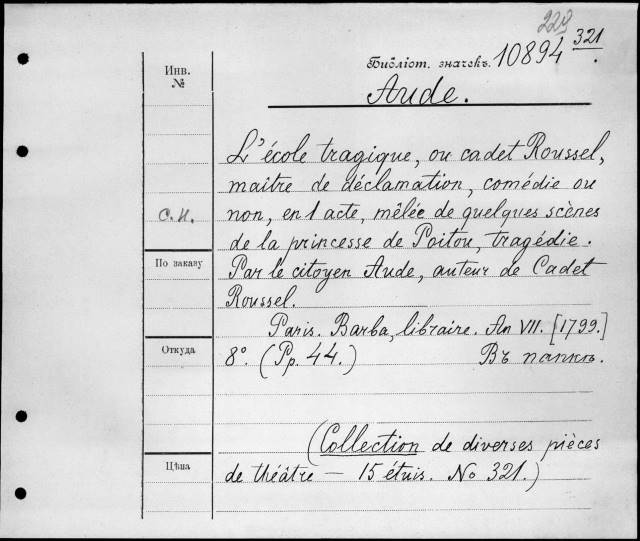 229
Библіот. значекъ. 10894 321.
Инв.
№
Aude.
L'école tragique, ou cadet Roussel,
maître de déclamation, comédie ou
С.И. non, en 1 acte, mêlée de quelques scènes
de la princesse de Poitou, tragédie.
По заказу
Par le citoyen Aude, auteur de Cadet
Roussel.
Paris. Barba, libraire. An VII. [1799.]
Откуда
8°. (Pp. 44.) Въ папкѣ.
(Collection de diverses pièces
Цѣна
de théâtre — 15 étuis. No 321.)